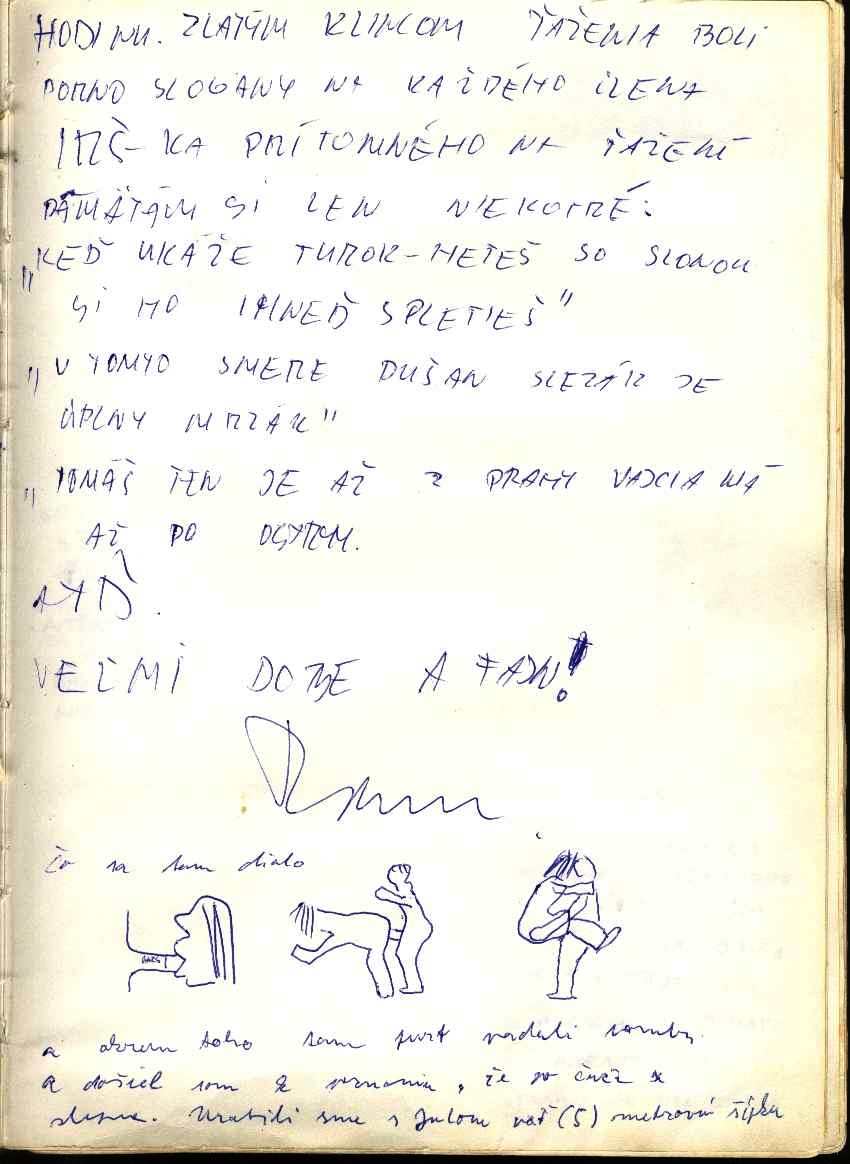 HODINU. ZLATÝM KLINCOM ŤAŽENIA BOLI
PORNO SLOGANY NA KAŽDÉHO ČLENA
PRÍTOMNÉHO NA ŤAŽENÍ
PÄMÄTÁM SI LEN NIEKOTRÉ:
„KEĎ UKÁŽE TUROK-METEŠ SO SLONOU
SI HO IHNEĎ SPLETIEŠ"
„V TOMTO SMERE DUŠAN SLEZÁK JE
ÚPLNY MRZÁK"
„TOMÁŠ TEN JE AŽ Z PRAHY VAJCIA MÁ
AŽ PO
VEĽMI DOBRE A FAJN!
čo sa tam dialo
a okrem toho tam furt
a došiel som k poznaniu, že
sme s Julom (5) metrovú šípku